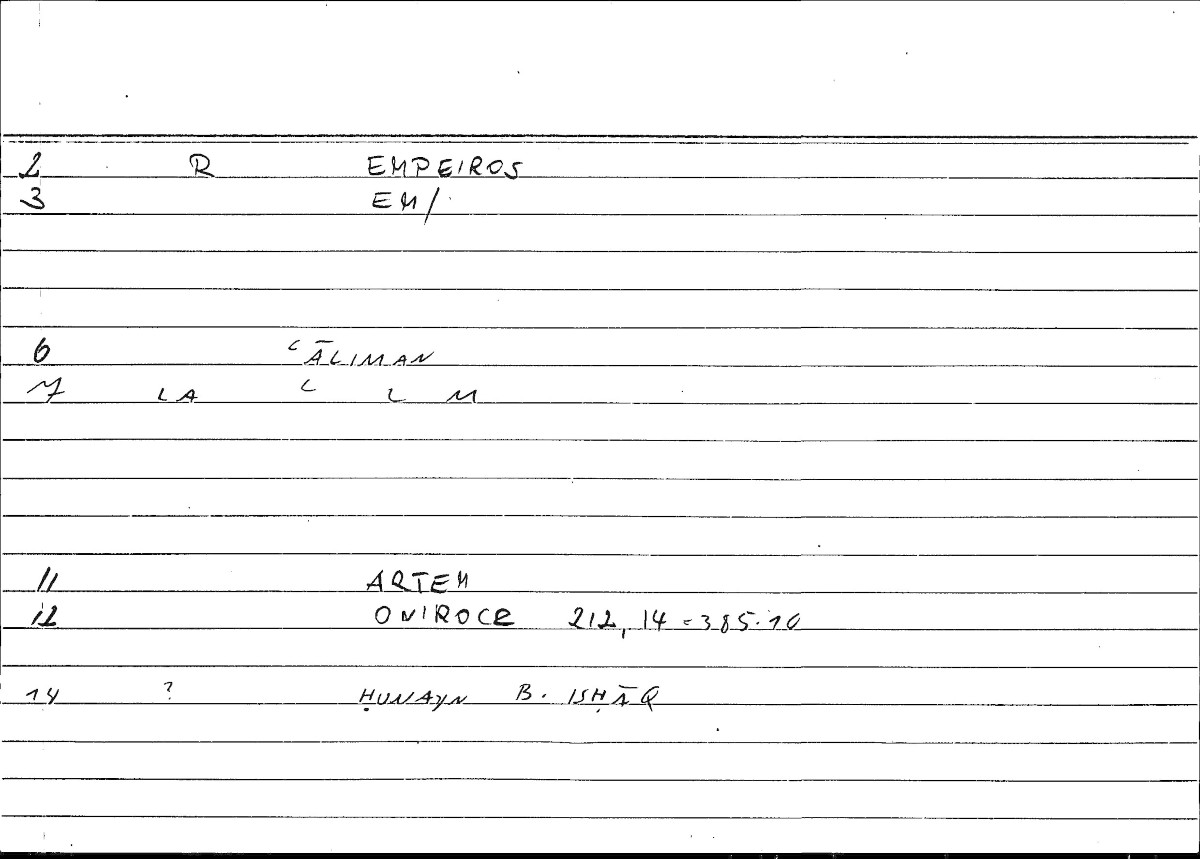 2 R EMPEIROS
3 EM/
6 ʿĀLIMAN
7 LA ʿ L M
11 ARTEM
12 ONIROCR 212, 14 = 385.10
14 ? ḤUNAYN B. ISḤĀQ